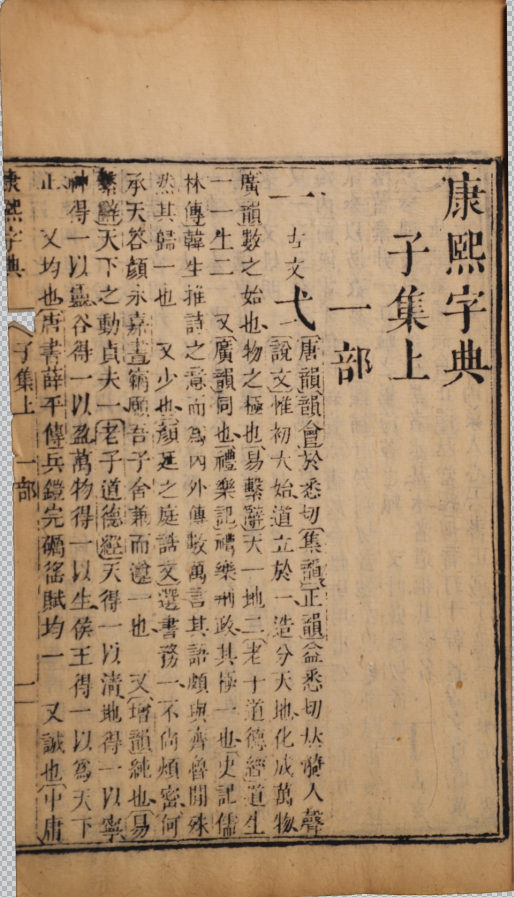 康熙字典
子集上
一部
一 古文弌 唐韻韻會於悉切集韻正韻益悉切𠀤漪入聲
說文惟初大始道立於一造分天地化成萬物
廣韻數之始也物之極也易繫辭天一地二老子道德經道生
一一生二 又廣韻同也禮樂記禮樂刑政其極一也史記儒
林傳韓生推詩之意而爲內外傳數萬言其語頗與齊魯閒殊
然其歸一也 又少也顏延之庭誥文選書務一不尚煩密何
承天答顏永嘉書竊願吾子舍兼而遵一也 又增韻純也易
繫辭天下之動貞夫一老子道德經天得一以淸地得一以寧
神得一以靈谷得一以盈萬物得一以生侯王得一以爲天下
正 又均也唐書薛平傳兵鎧完礪徭賦均一 又誠也中庸
康熙字典 子集上 一部 一